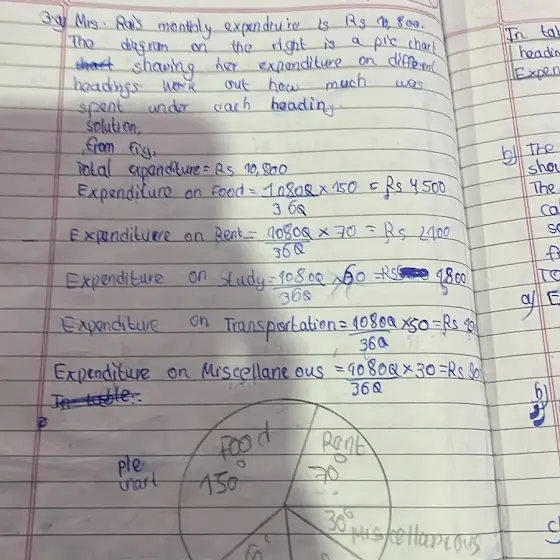 3.a) Mrs. Rai's monthly expenduire is Rs 10,800.
The diagram on the right is a pie chart
shart shaving her expenditure on different
headings work out how much was
spent under each heading.
solution,
from fig,
Total expanditure = Rs 10,800
Expenditure on Food = 10800/360 × 150 = Rs 4500
Expenditure on Rent = 10800/360 × 70 = Rs 2100
Expenditure on study = 10800/360 × 60 = Rs 1800
Expenditure on Transportation = 10800/360 × 50 = Rs
Expenditure on Miscellaneous = 10800/360 × 30 = Rs
In table:-
pie
chart
Food
150°
Rent
70°
30°
Miscellaneous
In tab
headin
Expen
b) The
shou
The
ca
so
a) E
b)